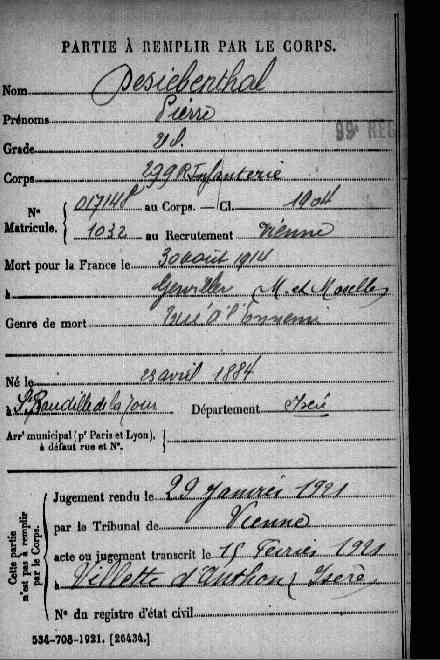 PARTIE À REMPLIR PAR LE CORPS.
Nom Desiebenthal
99e REG
Prénoms Pierre
Grade
Corps 299 R Infanterie
No Matricule. 017148 au Corps. — Cl. 1904
1032 au Recrutement Vienne
Mort pour la France le 30 août 1914
à Gerviller (M. et Moselle)
Genre de mort Tué à l'Ennemi
Né le 23 avril 1884
à St Baudille de la Tour Département Isère
Arrt municipal (pr Paris et Lyon), à défaut rue et No.
Cette partie n'est pas à remplir par le Corps.
Jugement rendu le 29 Janvier 1921
par le Tribunal de Vienne
acte ou jugement transcrit le 15 Fevrier 1921
à Villette d'Anthon (Isère)
No du registre d'état civil
534-708-1921. [26434.]